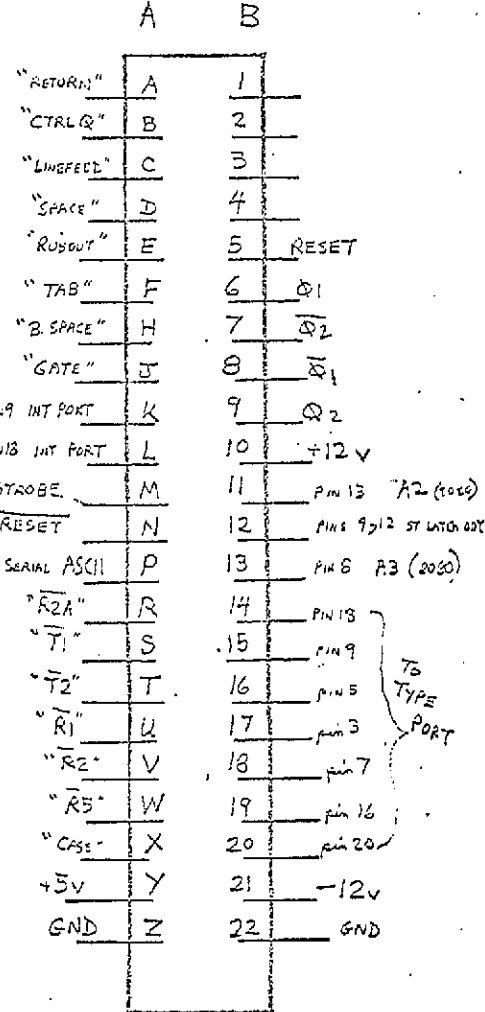 A B
"RETURN" A 1
"CTRL Q" B 2
"LINEFEED" C 3
"SPACE" D 4
"RUBOUT" E 5 RESET
"TAB" F 6 Φ1
"B. SPACE" H 7 Φ̅2̅
"GATE" J 8 Φ̅1
9 INT PORT K 9 Φ2
INT PORT L 10 +12 v
STROBE M 11 PIN 13 A2
RESET N 12 PINS 9,12 ST LATCH
SERIAL ASCII P 13 PIN 8 A3
"R̅2̅A̅" R 14 PIN 18
"T̅1̅" S 15 PIN 9
"T̅2" T 16 PIN 5
"R̅1" U 17 pin 3
"R̅2" V 18 pin 7
"R̅5" W 19 pin 16
"CASE" X 20 pin 20
TO TYPE PORT
+5v Y 21 -12v
GND Z 22 GND